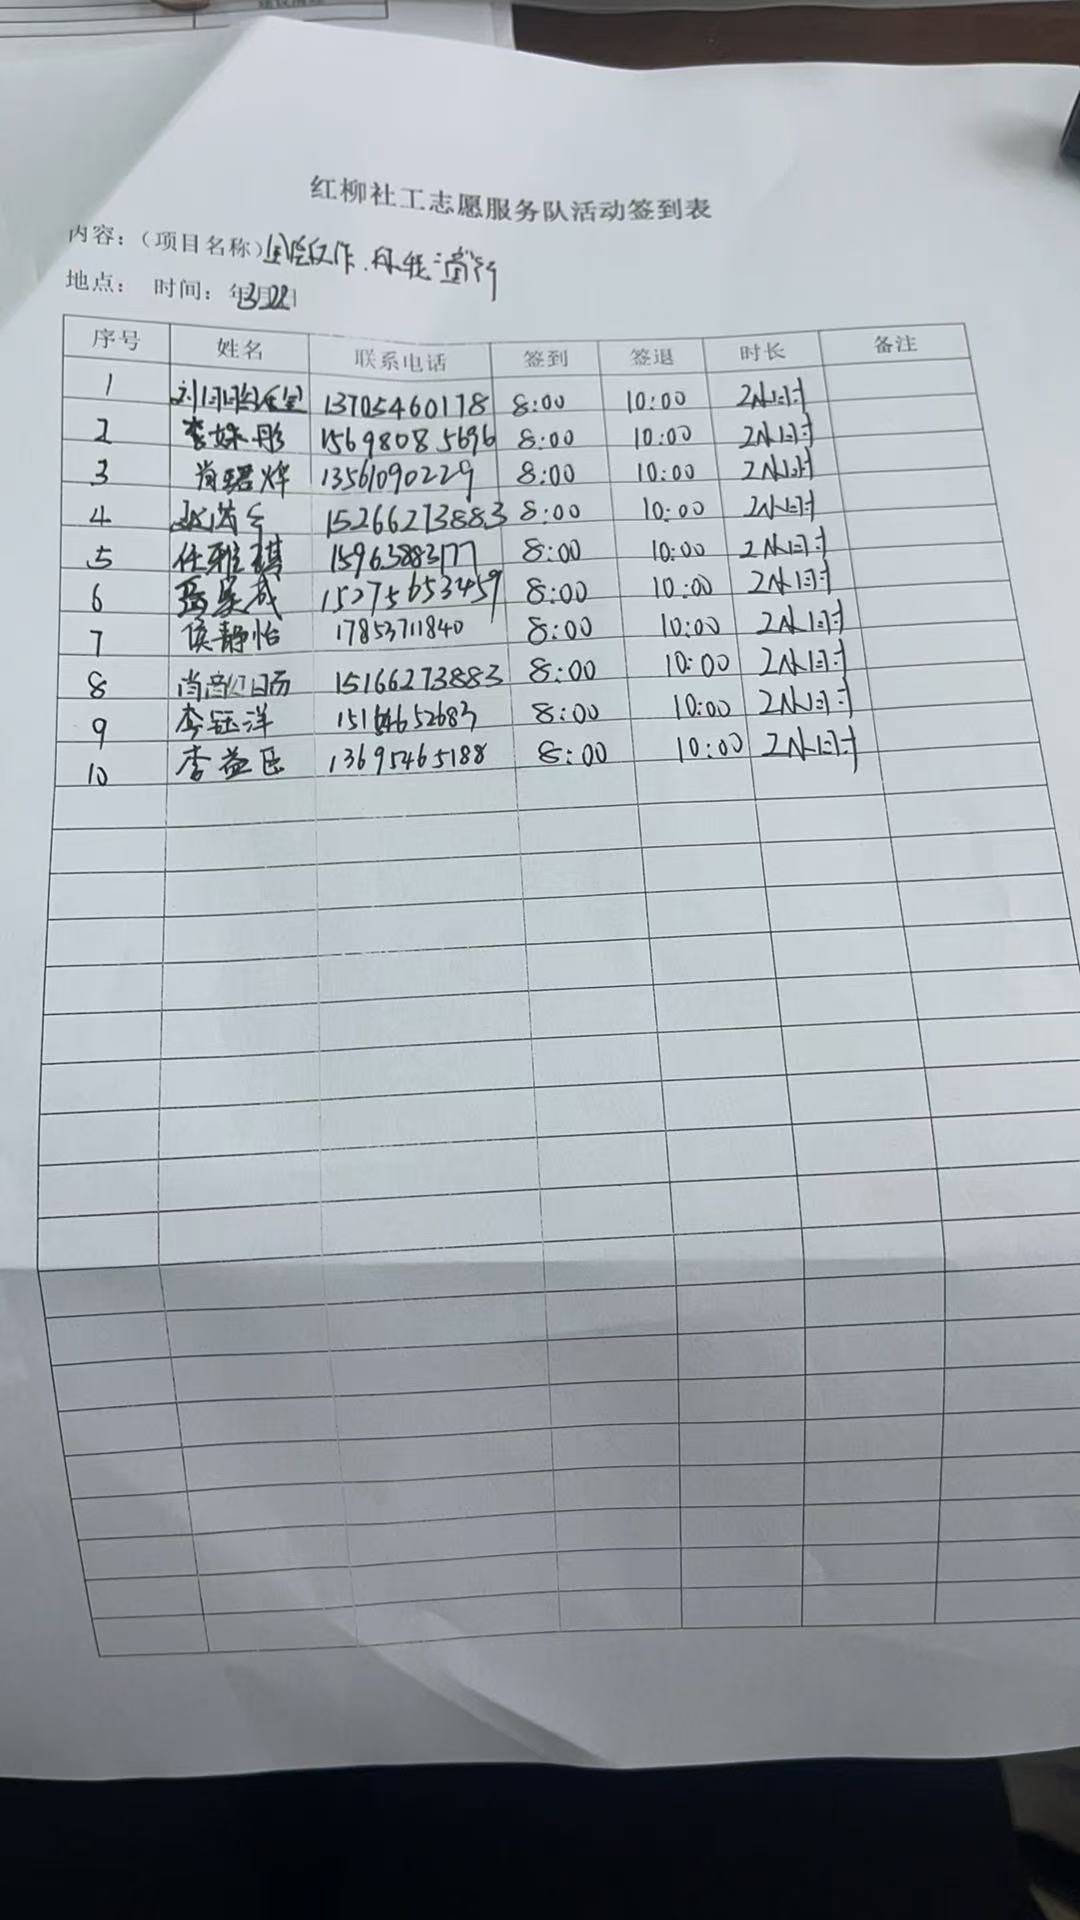 红柳社工志愿服务队活动签到表
内容：（项目名称）
地点： 时间： 年3月22日
序号 姓名 联系电话 签到 签退 时长 备注
1 13705460178 8:00 10:00 2小时
2 李姝彤 15698085696 8:00 10:00 2小时
3 肖珺烨 13561090229 8:00 10:00 2小时
4 15266273883 8:00 10:00 2小时
5 任雅琪 15963883177 8:00 10:00 2小时
6 15275653459 8:00 10:00 2小时
7 侯静怡 17853711840 8:00 10:00 2小时
8 15166273883 8:00 10:00 2小时
9 李钰洋 15164652683 8:00 10:00 2小时
10 李益臣 13695465188 8:00 10:00 2小时